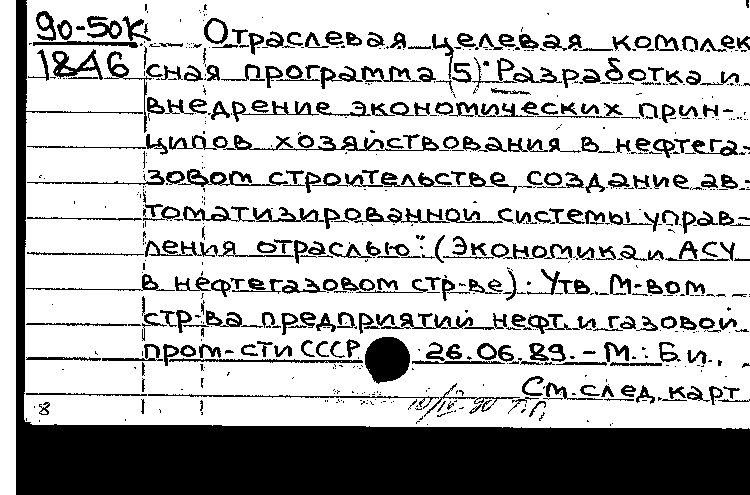 90-50К
1846
Отраслевая целевая комплек
сная программа (5) "Разработка и
внедрение экономических прин-
ципов хозяйствования в нефтега-
зовом строительстве, создание ав-
томатизированной системы управ-
ления отраслью": (Экономика и АСУ
в нефтегазовом стр-ве). Утв. М-вом
стр-ва предприятий нефт. и газовой
пром-сти СССР 26.06.89. - М.: Б.и.,
См. след. карт
8